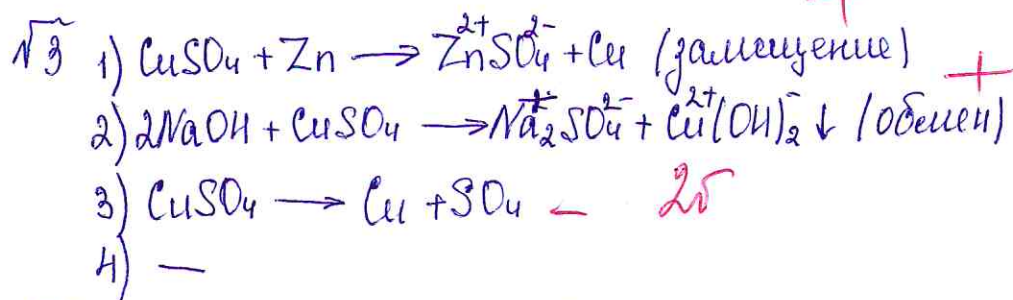 №3 1) CuSO₄ + Zn → Zn²⁺SO₄²⁻ + Cu (замещение)
+
2) 2NaOH + CuSO₄ → Na₂⁺SO₄²⁻ + Cu²⁺(OH)₂⁻ ↓ (обмен)
3) CuSO₄ → Cu + SO₄ – 2б
4) —